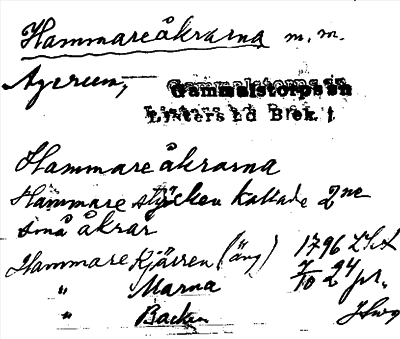 Hammareåkrarna m.m.
Agerum,
Gammalstorps sn
Listers hd Blek. l.
Hammare åkrarna
Hammare stycken kallade 2ne
små åkrar
Hammare Kjärren (äng) 1796 LSA
" Marna 7/10 24 pr.
" Backen